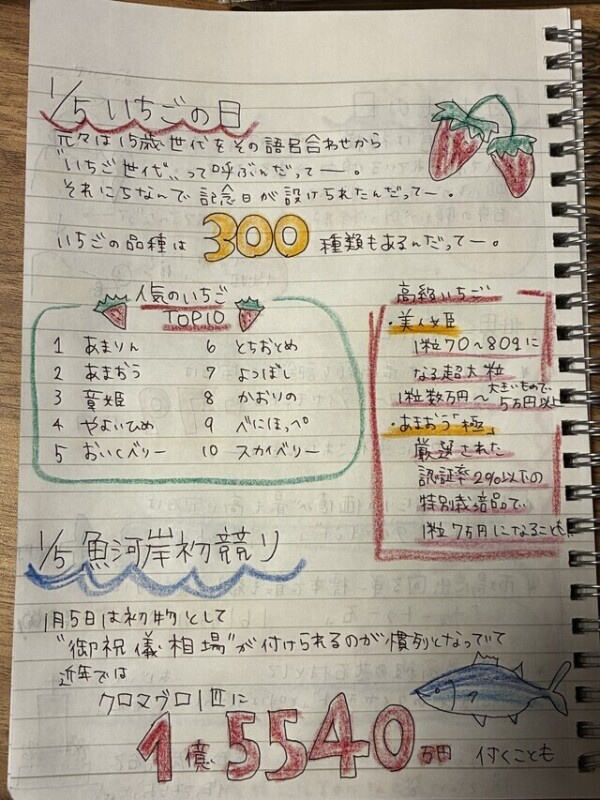 1/5 いちごの日
元々は15歳世代をその語呂合わせから
"いちご世代"って呼ぶんだってー。
それにちなんで記念日が設けられたんだってー。
いちごの品種は 300 種類もあるんだってー。
人気のいちご
TOP10
1 あまりん
2 あまおう
3 章姫
4 やよいひめ
5 おいCベリー
6 とちおとめ
7 よつぼし
8 かおりの
9 べにほっぺ
10 スカイベリー
高級いちご
・美人姫
1粒70〜80gに
なる超大粒
1粒数万円〜 大きいもので
5万円以上
・あまおう「極」
厳選された
認証率2%以下の
特別栽培品で
1粒7万円になることも
1/5 魚河岸初競り
1月5日は初物として
"御祝儀相場"が付けられるのが慣例となっていて
近年では
クロマグロ1匹に
1億5540万円 付くことも